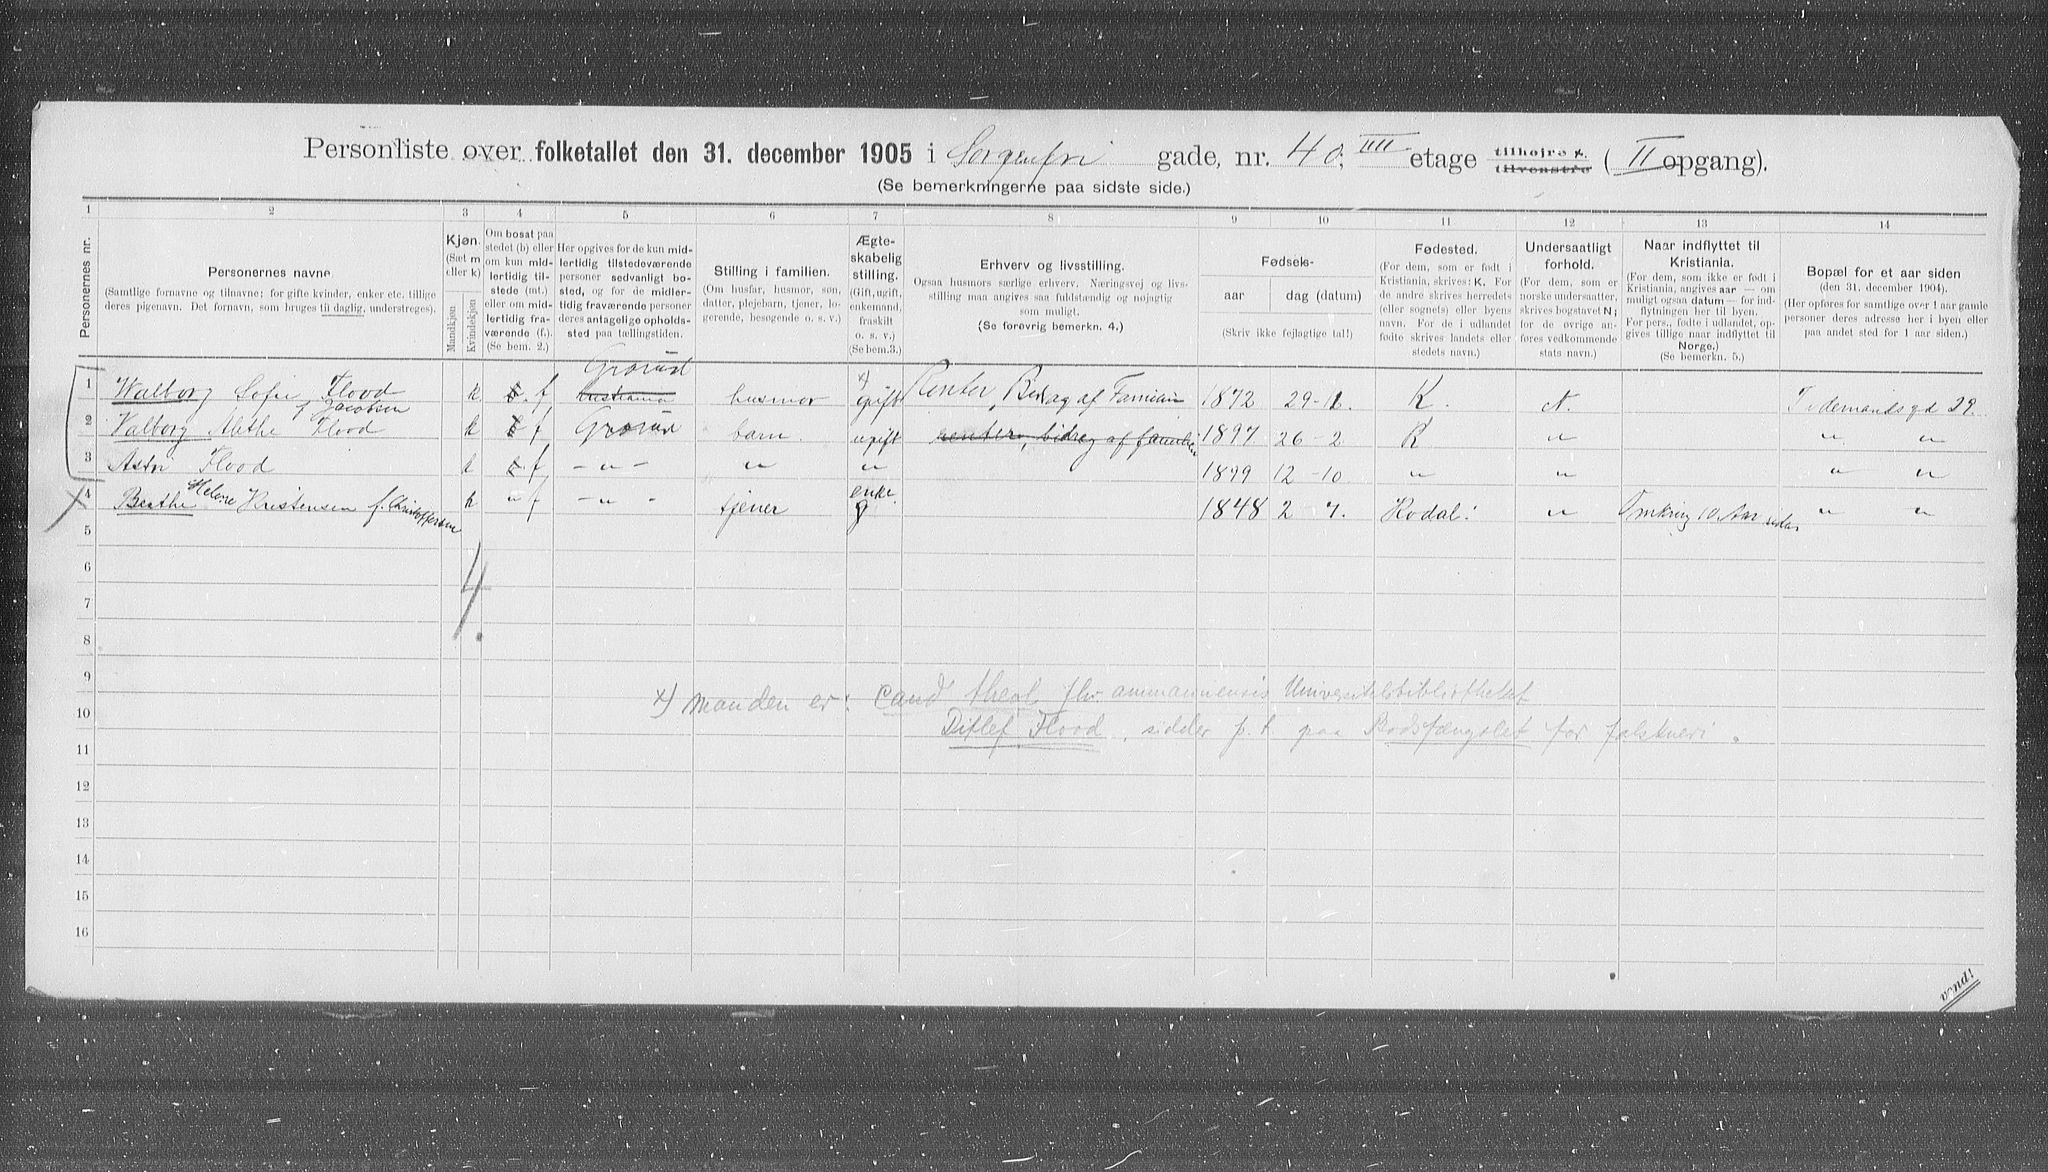 Personliste over folketallet den 31. december 1905 i Sorgenfri gade, nr. 40, IIII etage tilhøjre x. tilvenstre ( II opgang).
(Se bemerkningerne paa sidste side.)
1 2 3 4 5 6 7 8 9 10 11 12 13 14
Personernes nr.
Personernes navne.
(Samtlige fornavne og tilnavne; for gifte kvinder, enker etc. tillige
deres pigenavn. Det fornavn, som bruges til daglig, understreges).
Kjøn.
(Sæt m
eller k)
Mandkjøn
Kvindekjøn
Om bosat paa
stedet (b) eller
om kun mid-
lertidig til-
stede (mt.)
eller om mid-
lertidig fra-
værende (f.).
(Se bem. 2.)
Her opgives for de kun mid-
lertidig tilstedeværende
personer sedvanligt bo-
sted, og for de midler-
tidig fraværende personer
deres antagelige opholds-
sted paa tællingstiden.
Stilling i familien.
(Om husfar, husmor, søn,
datter, plejebarn, tjener, lo-
gerende, besøgende o. s. v.)
Ægte-
skabelig
stilling.
(Gift, ugift,
enkemand,
fraskilt
o. s. v.)
(Se bem.3.)
Erhverv og livsstilling.
Ogsaa husmors særlige erhverv. Næringsvej og livs-
stilling maa angives saa fuldstændig og nøjagtig
som muligt.
(Se forøvrig bemerkn. 4.)
Fødsels-
aar
dag (datum)
(Skriv ikke fejlagtige tal!)
Fødested.
(For dem, som er født i
Kristiania, skrives: K. For
de andre skrives herredets
(eller sognets) eller byens
navn. For de i udlandet
fødte skrives landets eller
stedets navn.)
Undersaatligt
forhold.
(For dem, som er
norske undersaatter,
skrives bogstavet N;
for de øvrige an-
føres vedkommende
stats navn.)
Naar indflyttet til
Kristiania.
(For dem, som ikke er født i
Kristiania, angives aar — om
muligt ogsaa datum — for ind-
flytningen her til byen.
For pers., fødte i udlandet, op-
gives tillige naar indflyttet til
Norge.)
(Se bemerkn. 5.)
Bopæl for et aar siden
(den 31. december 1904).
(Her opføres for samtlige over 1 aar gamle
personer deres adresse her i byen eller
paa andet sted for 1 aar siden.)
Grorud
1 Walborg Sofie Flood f Jacobsen k b. f Kristiania husmor x) gift Renter, Bidrag af Familien 1872 29-12. K. N. Tidemandsgd 29.
2 Valborg Methe Flood k b f Grorud barn ugift renter, bidrag af familien 1897 26-2 K " " "
3 Astri Flood k b f - " - " " 1899 12-10. " " " "
4 Berthe Helene Kristensen f. Christoffersen k " f - " - tjener enke g 1848 2 7. Hodal: " Omkring 10 Aar siden " "
5
6
7
4.
8
9
x) Manden er: cand theol fhv. amanuensis Universitetsbibliotheket
10
Ditlef Flood, sidder p. t. paa Bodsfængslet for falskneri.
11
12
13
14
15
16